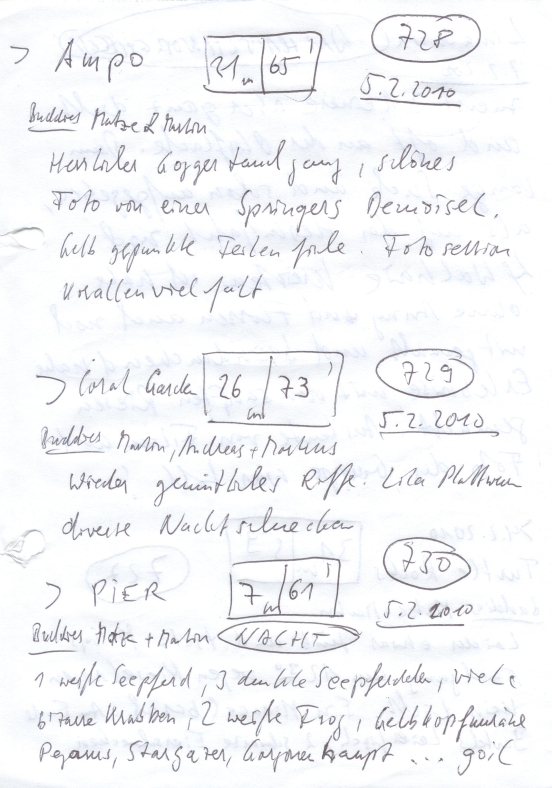 > Ampo 21 m | 65' 728
5.2.2010
Buddies Matze & Martin
Herrlicher Joggertauchgang, schönes
Foto von einer Springers Demoisel.
Gelb gepunkte Feilenfische. Fotosession
Korallenvielfalt
> Coral Garden 26 m | 73' 729
5.2.2010
Buddies Martin, Andreas + Markus
Wieder gemütliches Riff. Lila Plattwurm
diverse Nacktschnecken
> PIER 7 m | 61' 730
5.2.2010
Buddies Matze + Martin NACHT
1 weiße Seepferd, 3 dunkle Seepferdchen, viele
bizarre Krabben, 2 weiße Frog, Gelbkopfmuräne
Pegasus, Stargazer, Gorgonenhaupt ... geil